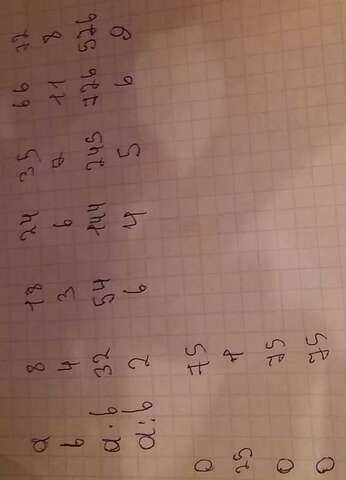 a 8 18 24 35 66 72
b 4 3 6 7 11 8
a · b 32 54 144 245 726 576
a : b 2 6 4 5 6 9
0 75
25
0 75
0 75